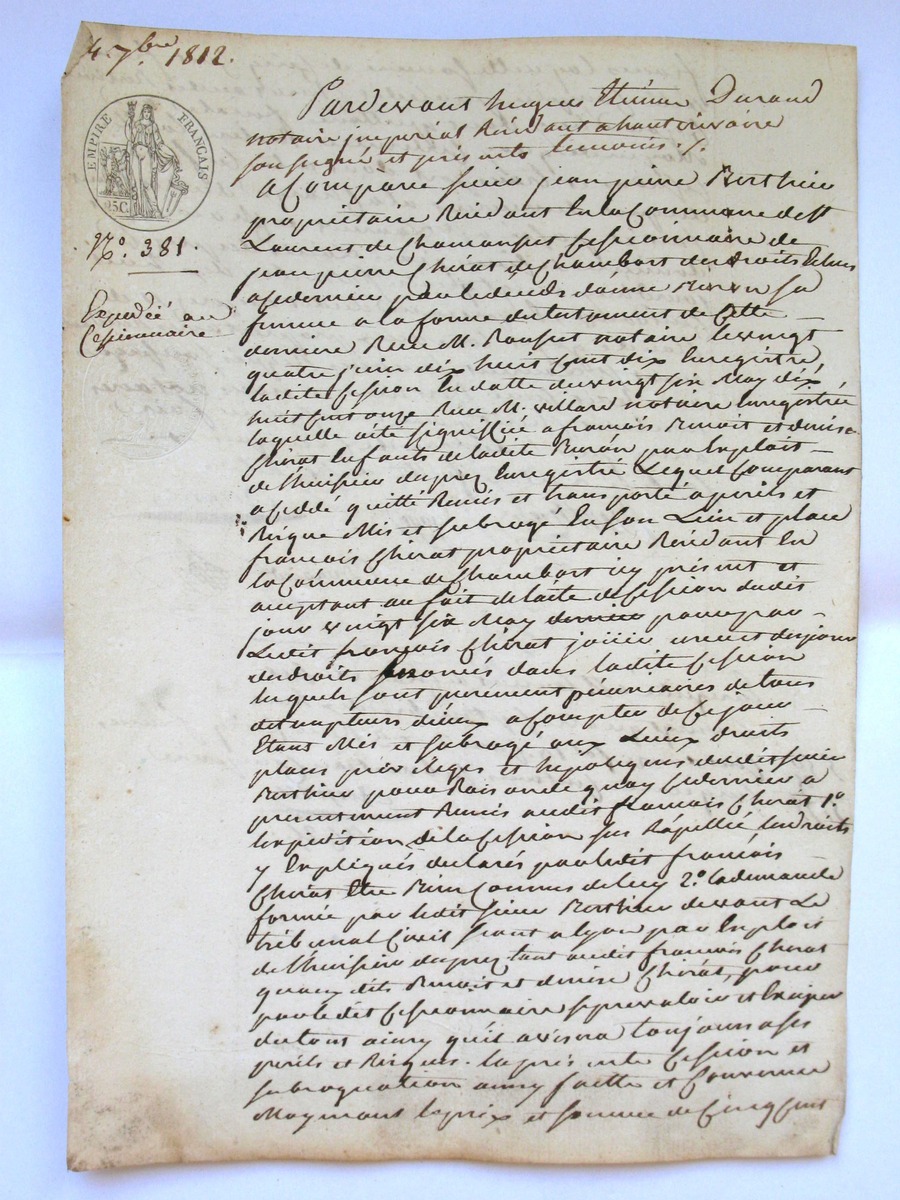 4. 7bre 1812.
EMPIRE FRANÇAIS
25 C.
N.º 381.
Expedié au
Cessionnaire
Pardevant hugues Etienne Durand
notaire imperial Résidant a haute rivoire
soussigné et présents temoins ./.
a Comparu sieur jean pierre Berthier
propriétaire Résidant En la Commune de St
Laurent de Chamousset Cessionnaire de
jean pierre Chirat de Chambost des droits Echus
a ce dernier par le deceds d'aimé sa
femme a la forme du testament de Cette
derniere Reçu M. notaire le vingt
quatre juin dix huit Cent dix Enregistré,
ladite Cession En datte du vingt six May dix
huit Cent onze Reçue M. villard notaire Enregistrée
laquelle a été signiffiée a francois Benoit et denise
Chirat Enfants de ladite par Exploit
de l'huissier dupuy Enregistré Lequel Comparant
a Ceddé quitté Remis et transporté a perils et
Risque Mis et subrogé En son Lieu et place
francois Chirat propriétaire Résidant En
la Commune de Chambost icy présent et
acceptant au fait de ladite Cession dudit
jour vingt six May dernier pour par
Ledit françois Chirat jouir user et disposer
des droits Enoncés dans ladite Cession
lesquels sont purement pécuniaires de tous
a Compter de Ce jour
Etant Mis et subrogé aux Lieux droits
places privileges et hipoteques dudit sieur
Berthier pour Raison de quoy Ce dernier a
presentement Remis audit francois Chirat 1.º
Expedition de la Cession sus Rapellée les droits
y Expliqués declarés par ledit francois
Chirat Etre Bien Connus de luy 2.º la demande
formée par ledit sieur Berthier devant Le
tribunal Civil séant a Lyon par Exploit
de l'huissier dupuy tant audit francois Chirat
qu'aux dits Benoit et denise Chirat, pour
par le dit Cessionnaire se prevaloir et Exciper
du tout ainsy qu'il avisera toujours a ses
perils et Risques. la présente Cession et
subrogation ainsy faitte et Convenue
Moyennant le prix et somme de Cinq Cent